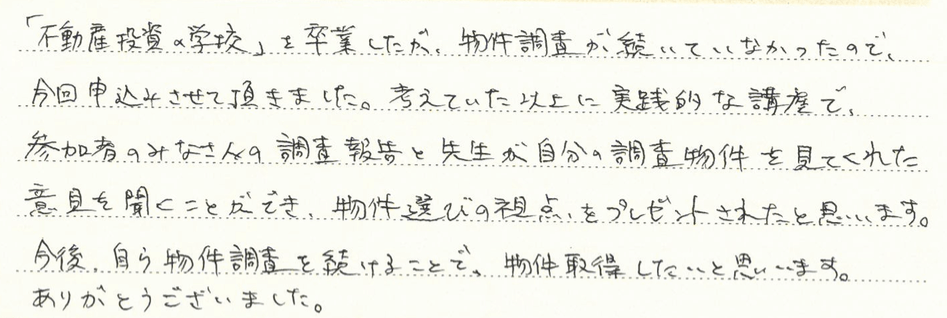 「不動産投資の学校」を卒業したが、物件調査が続いていなかったので、
今回申込みさせて頂きました。考えていた以上に実践的な講座で、
参加者のみなさんの調査報告と先生が自分の調査物件を見てくれた
意見を聞くことができ、物件選びの視点、をプレゼントされたと思います。
今後、自ら物件調査を続けることで、物件取得したいと思います。
ありがとうございました。